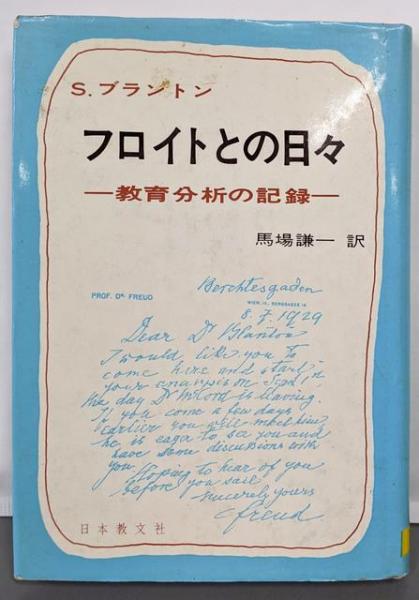 S. ブラントン
フロイトとの日々
―教育分析の記録―
馬場謙一 訳
Berchtesgaden
PROF. DR. FREUD
WIEN, IX., BERGGASSE 19
8. 7. 1929
Dear Dr Blanton
I would like you to
come here and start
your analysis on Sept 1,
the day Dr McCord is leaving.
If you come a few days
earlier you will meet him
he is eager to see you and
have some discussions with
you.
Hoping to hear of you
before you sail
sincerely yours
freud
日本教文社